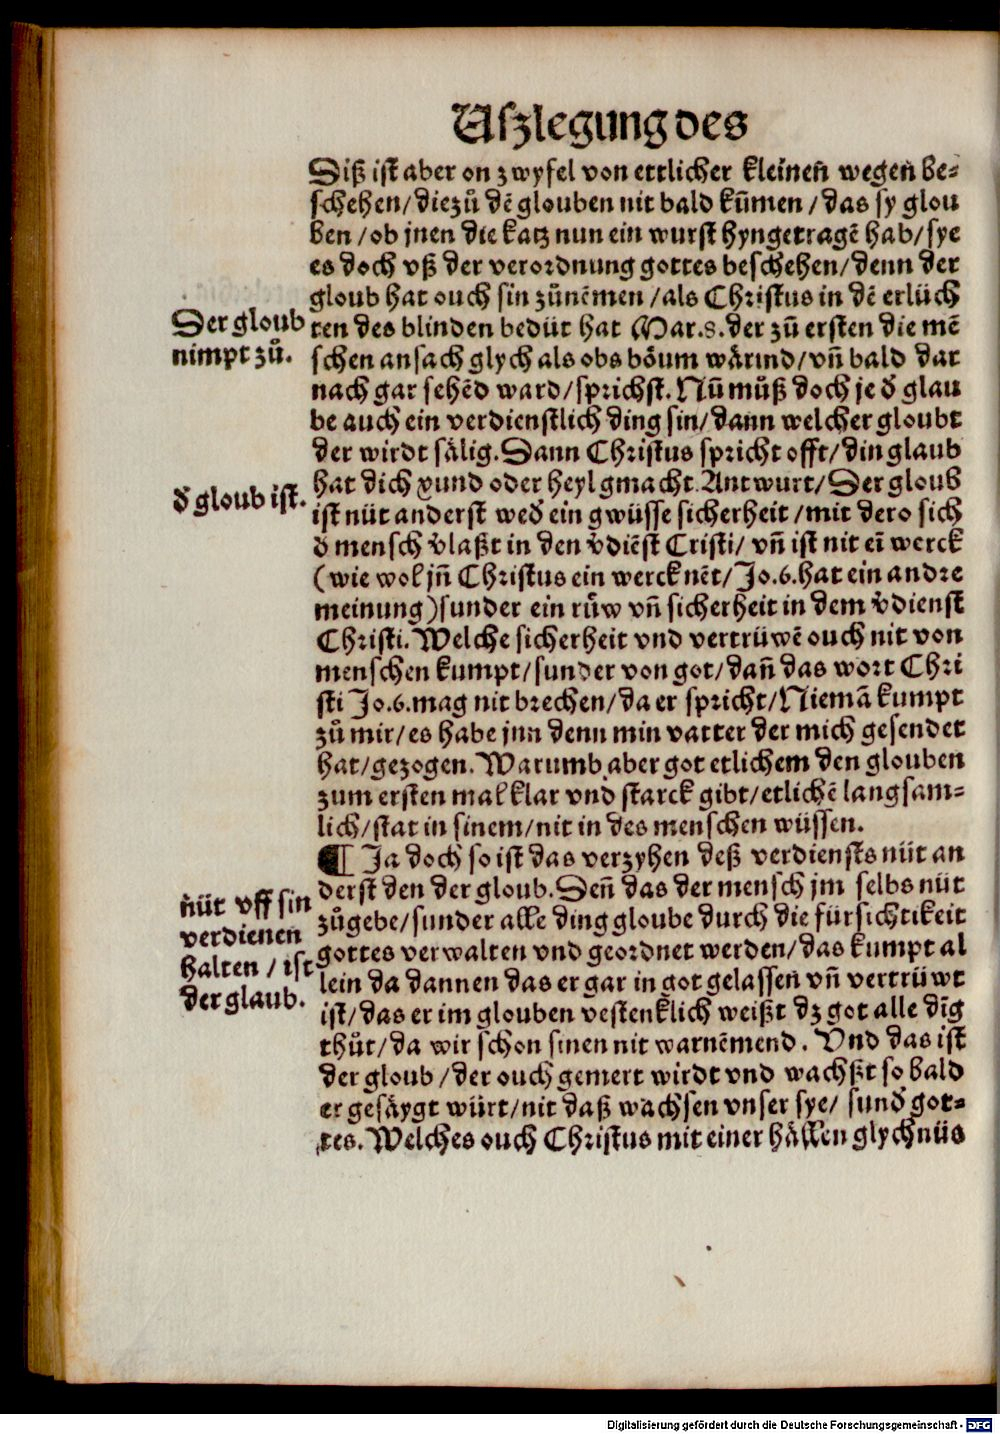 Uſzlegung des
Diß iſt aber on zwyfel von ettlicher kleineñ wegen be⸗
ſchehen/ diezů dē glouben nit bald kūmen / das ſy glou
ben / ob jnen die katz nun ein wurſt hyngetragē hab/ ſye
es doch vß der verordnung gottes beſchehen/ denn der
gloub hat ouch ſin zůnēmen / als Chriſtus in dē erlüch
Der gloub
nimpt zů.
ten des blinden bedüt hat Mar.8. der zů erſten die mē
ſchen anſach glych als obs böum wärind/ vñ bald dar
nach gar ſehēd ward/ ſprichſt. Nū můß doch je d̕ glau
be auch ein verdienſtlich ding ſin/ dann welcher gloubt
der wirdt ſälig. Dann Chriſtus ſpricht offt/ din glaub
hat dich xund oder heyl gmacht. Antwurt/ Der gloub
d̕ gloub iſt.
iſt nüt anderſt wed̕ ein gwüſſe ſicherheit / mit dero ſich
d̕ menſch v̕laßt in den v̕diēſt Criſti/ vñ iſt nit eī werck
(wie wol jñ Chriſtus ein werck nēt/ Jo.6. hat ein andre
meinung) ſunder ein růw vñ ſicherheit in dem v̕dienſt
Chriſti. Welche ſicherheit vnd vertrüwē ouch nit von
menſchen kumpt/ ſunder von got/ dañ das wort Chri
ſti Jo.6. mag nit brechen/ da er ſpricht/ Niemā kumpt
zů mir/ es habe jnn denn min vatter der mich geſendet
hat/ gezogen. Warumb aber got etlichem den glouben
zum erſten mal klar vnd ſtarck gibt/ etlichē langſam⸗
lich/ ſtat in ſinem/ nit in des menſchen wüſſen.
¶ Ja doch ſo iſt das verzyhen deß verdienſts nüt an
derſt den der gloub. Deñ das der menſch jm ſelbs nüt
nüt vff ſin
verdienen
halten / iſt
der glaub.
zůgebe/ ſunder alle ding gloube durch die fürſichtikeit
gottes verwalten vnd geordnet werden/ das kumpt al
lein da dannen das er gar in got gelaſſen vñ vertrüwt
iſt/ das er im glouben veſtenklich weißt dz got alle dīg
thůt/ da wir ſchon ſinen nit warnēmend. Vnd das iſt
der gloub / der ouch gemert wirdt vnd wachßt ſo bald
er geſäygt würt/ nit daß wachſen vnſer ſye/ ſund̕ got⸗
tes. Welches ouch Chriſtus mit einer hällen glychnüs
Digitalisierung gefördert durch die Deutsche Forschungsgemeinschaft - DFG